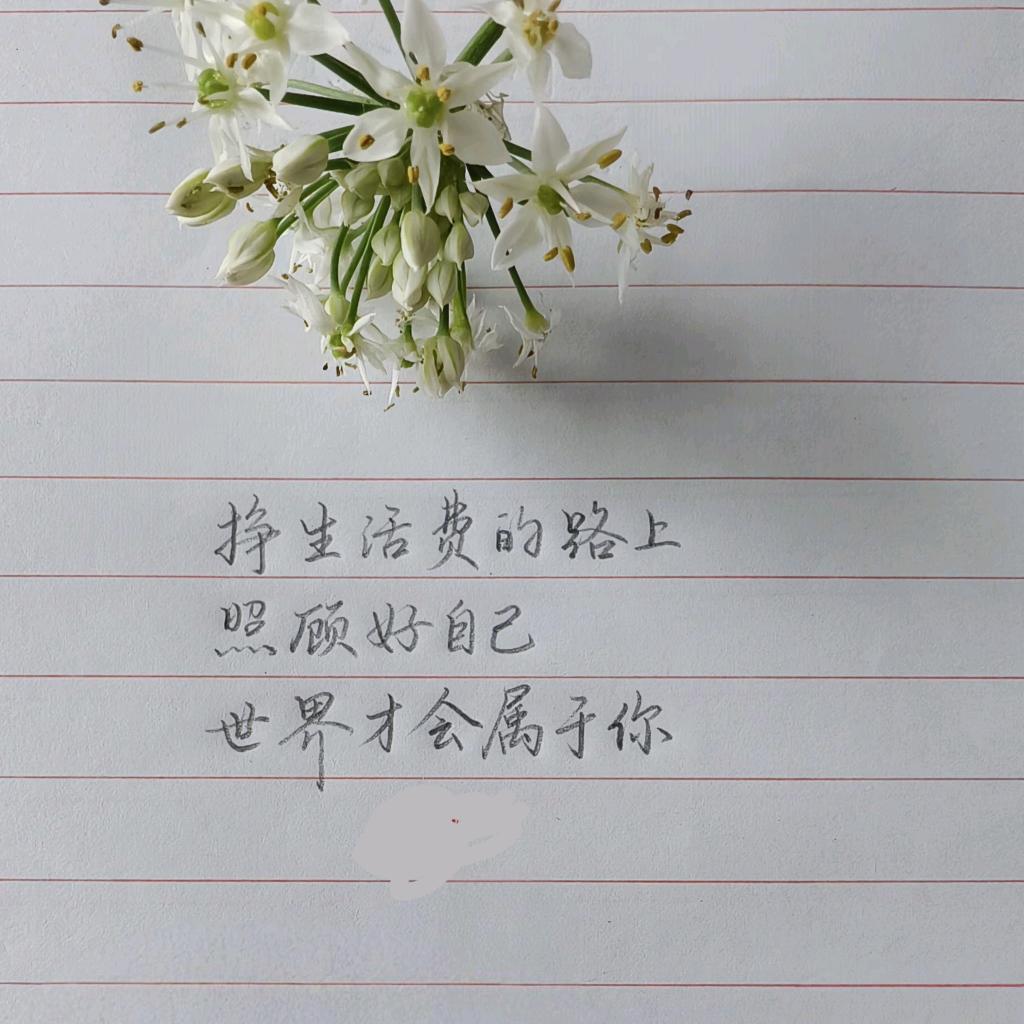 挣生活费的路上
照顾好自己
世界才会属于你